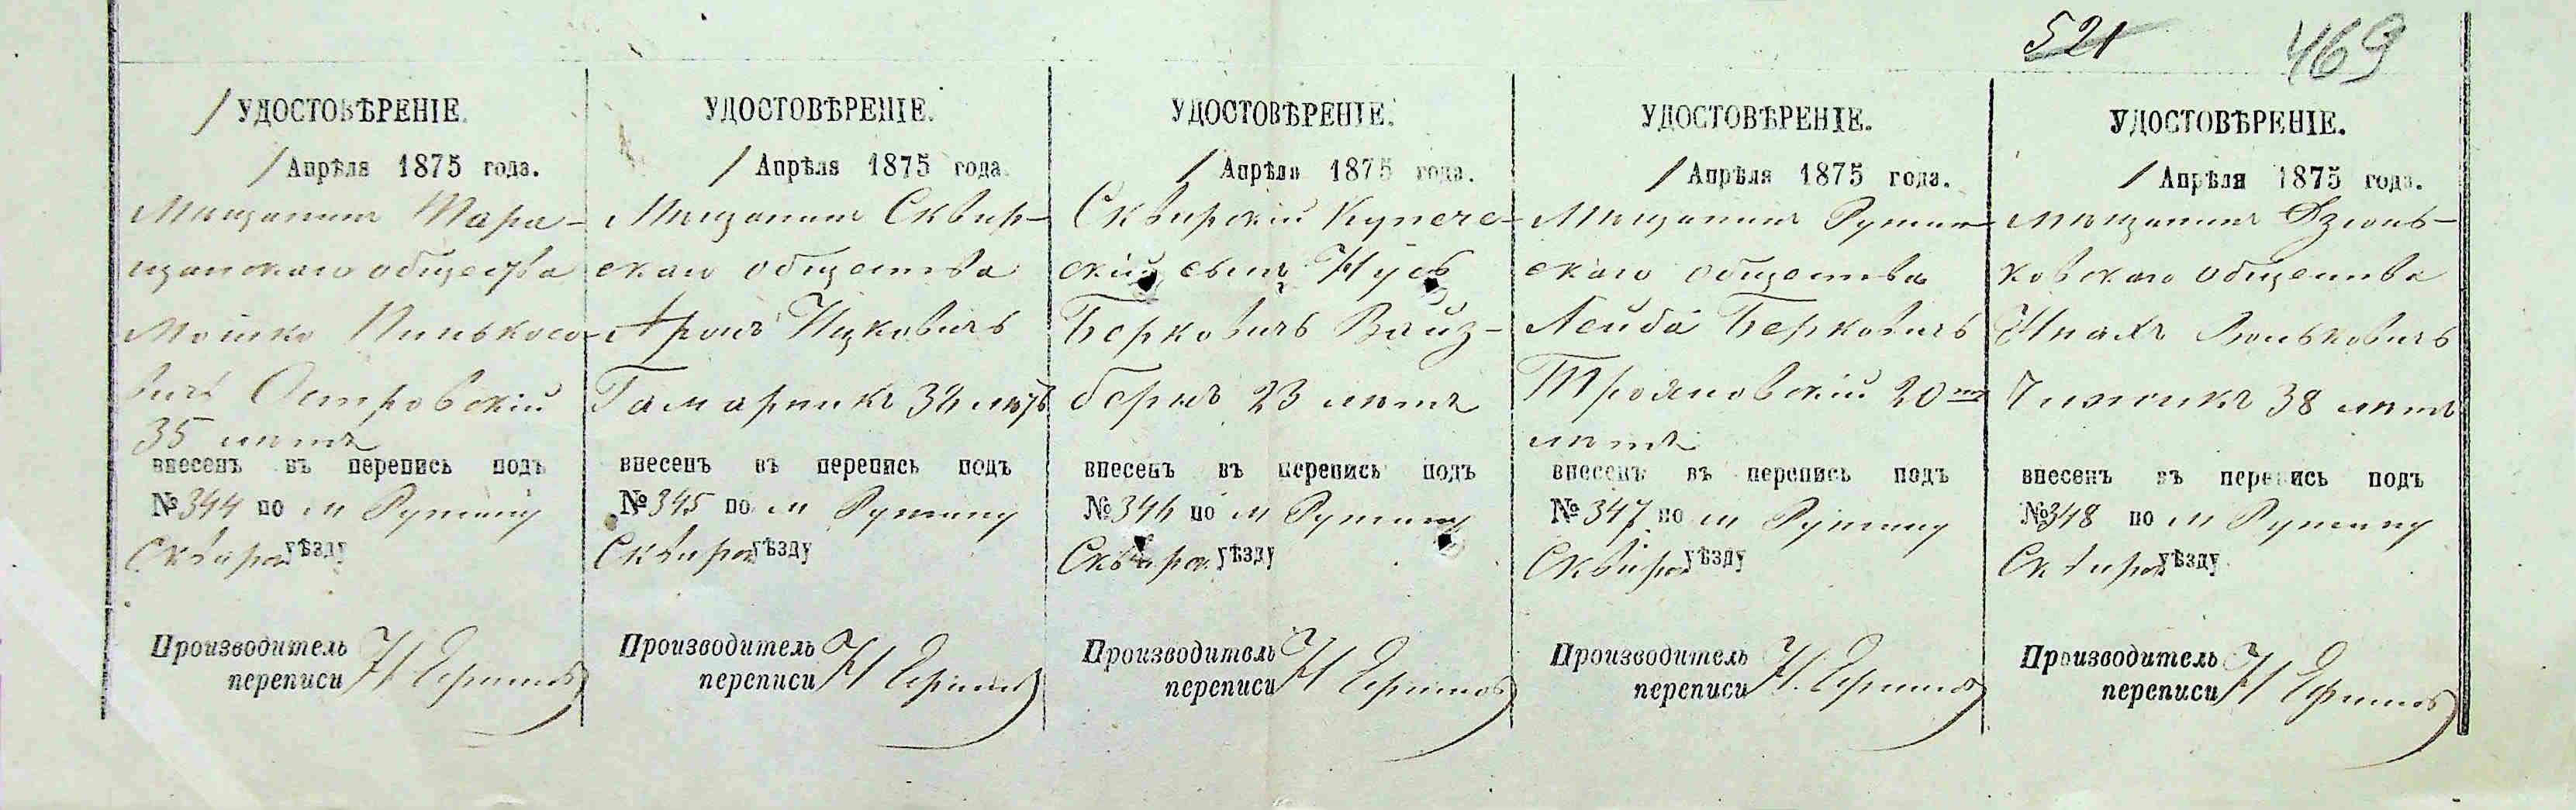 521 469
УДОСТОВѢРЕНІЕ.
Апрѣля 1875 года.
Мещанинъ Тара-
щанскаго общества
Мошко Пинькосо-
вичъ Островскій
35 лѣтъ
внесенъ въ перепись подъ
№ 344 по м Ружину
Сквирск уѣзду
Производитель
переписи Н
УДОСТОВѢРЕНІЕ.
Апрѣля 1875 года.
Мещанинъ Сквир-
скаго общества
Аронъ Ицковичъ
Гамарникъ 34 лѣтъ
внесенъ въ перепись подъ
№ 345 по м Ружину
Сквирск уѣзду
Производитель
переписи Н
УДОСТОВѢРЕНІЕ.
Апрѣля 1875 года.
Сквирскій Купече-
скій сынъ Нусь
Берковичъ Вайз-
бергъ 23 лѣтъ
внесенъ въ перепись подъ
№ 346 по м Ружину
Сквирск уѣзду
Производитель
переписи Н
УДОСТОВѢРЕНІЕ.
Апрѣля 1875 года.
Мещанинъ Ружин-
скаго общества
Лейба Берковичъ
Трояновскій 20 ти
лѣтъ
внесенъ въ перепись подъ
№ 347 по м Ружину
Сквирск уѣзду
Производитель
переписи Н.
УДОСТОВѢРЕНІЕ.
Апрѣля 1875 года.
Мещанинъ Дзюнь-
ковскаго общества
Ипахъ Зюньковичъ
38 лѣтъ
внесенъ въ перепись подъ
№ 348 по м Ружину
Сквирск уѣзду
Производитель
переписи Н